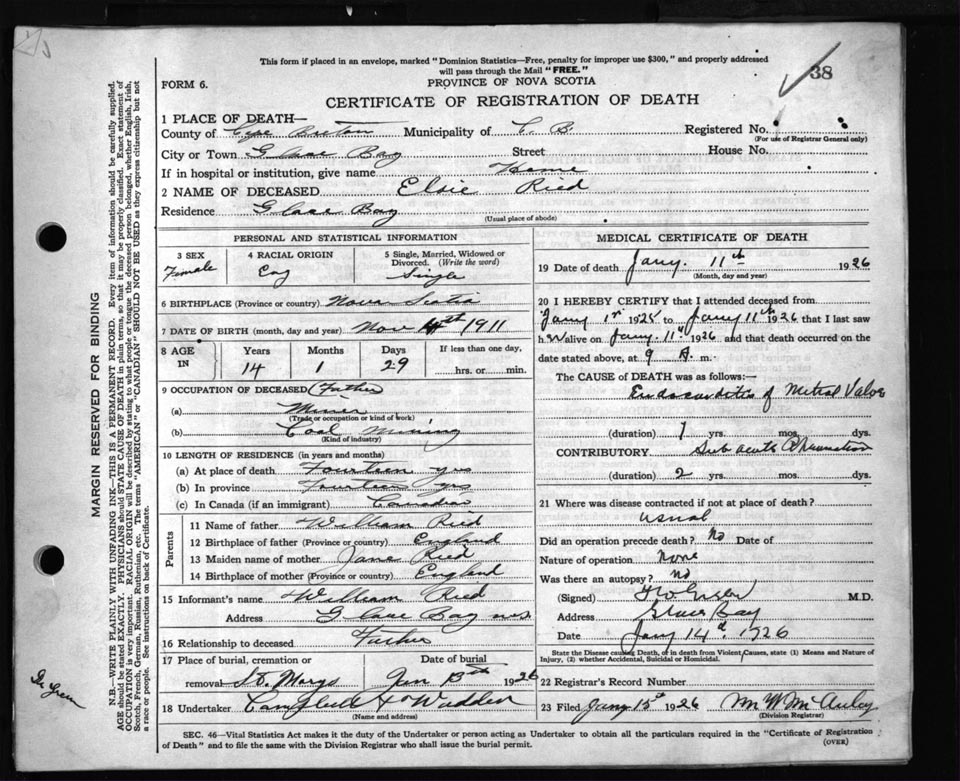 This form if placed in an envelope, marked "Dominion Statistics—Free, penalty for improper use $300," and properly addressed
will pass through the Mail "FREE."
38
FORM 6.
PROVINCE OF NOVA SCOTIA
CERTIFICATE OF REGISTRATION OF DEATH
1 PLACE OF DEATH—
County of Cape Breton Municipality of C. B. Registered No.
(For use of Registrar General only)
City or Town Glace Bay Street House No.
If in hospital or institution, give name Home
2 NAME OF DECEASED Elsie Ried
Residence Glace Bay
(Usual place of abode)
PERSONAL AND STATISTICAL INFORMATION
3 SEX 4 RACIAL ORIGIN 5 Single, Married, Widowed or
Divorced. (Write the word)
Female Eng Single
6 BIRTHPLACE (Province or country) Nova Scotia
7 DATE OF BIRTH (month, day and year) Nov th 1911
8 AGE IN Years Months Days If less than one day,
14 1 29 hrs. or min.
9 OCCUPATION OF DECEASED (Father)
(a) Miner
(Trade or occupation or kind of work)
(b) Coal Mining
(Kind of industry)
10 LENGTH OF RESIDENCE (in years and months)
(a) At place of death Fourteen yrs
(b) In province Fourteen yrs
(c) In Canada (if an immigrant)
Parents
11 Name of father William Ried
12 Birthplace of father (Province or country) England
13 Maiden name of mother Jane Ried
14 Birthplace of mother (Province or country) England
15 Informant's name William Ried
Address Glace Bay N.S.
16 Relationship to deceased Father
17 Place of burial, cremation or Date of burial
removal St. Marys Jan 13th 1926
18 Undertaker & Wadden
(Name and address)
MEDICAL CERTIFICATE OF DEATH
19 Date of death Jany. 11th 1926
(Month, day and year)
20 I HEREBY CERTIFY that I attended deceased from
Jany 1st 1925 to Jany 11th 1926 that I last saw
her alive on Jany. 11th 1926 and that death occurred on the
date stated above, at 9 A. m.
The CAUSE OF DEATH was as follows:
Endocarditis of Mitral Valve
(duration) 1 yrs. mos. dys.
CONTRIBUTORY Sub acute Rheumatism
(duration) 2 yrs. mos. dys.
21 Where was disease contracted if not at place of death?
usual
Did an operation precede death? No Date of
Nature of operation None
Was there an autopsy? No
(Signed) M.D.
Address Glace Bay
Date Jany 14th 1926
State the Disease causing Death, or in death from Violent Causes, state (1) Means and Nature of
Injury, (2) whether Accidental, Suicidal or Homicidal.
22 Registrar's Record Number
23 Filed Jany 15th 1926 M W McAuley
(Division Registrar)
SEC. 46—Vital Statistics Act makes it duty of the Undertaker or person acting as Undertaker to obtain all the particulars required in the "Certificate of Registration
of Death" and to file the same with the Division Registrar who shall issue the burial permit.
(OVER)
MARGIN RESERVED FOR BINDING
N.B.—WRITE PLAINLY WITH UNFADING INK—THIS IS A PERMANENT RECORD. Every item of information should be carefully supplied.
AGE should be stated EXACTLY. PHYSICIANS should STATE CAUSE OF DEATH in plain terms, so that it may be properly classified. Exact statement of
OCCUPATION is very important. RACIAL ORIGIN will be described by stating to what people or tongue the deceased person belonged, whether English, Irish,
Scotch, French, German, Russian, Ruthenian, etc. The terms "AMERICAN" or "CANADIAN" SHOULD NOT BE USED as they express citizenship but not
a race or people. See instructions on back of Certificate.